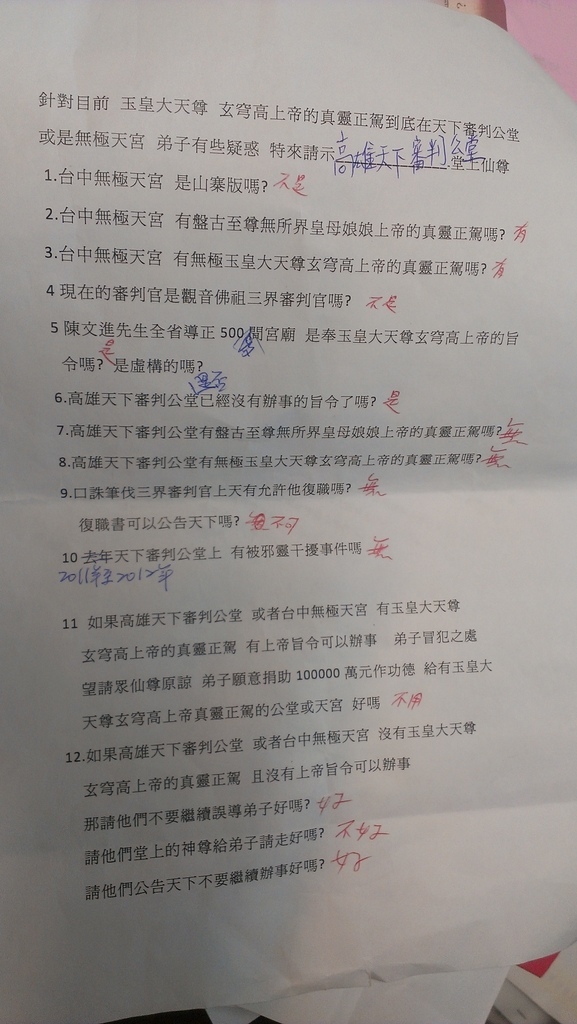 針對目前 玉皇大天尊 玄穹高上帝的真靈正駕到底在天下審判公堂
或是無極天宮 弟子有些疑惑 特來請示高雄天下審判公堂堂上仙尊
1.台中無極天宮 是山寨版嗎? 不是
2.台中無極天宮 有盤古至尊無所界皇母娘娘上帝的真靈正駕嗎? 有
3.台中無極天宮 有無極玉皇大天尊玄穹高上帝的真靈正駕嗎? 有
4 現在的審判官是觀音佛祖三界審判官嗎? 不是
5 陳文進先生全省導正 500 間宮廟 是奉玉皇大天尊玄穹高上帝的旨
令嗎? 是 是虛構的嗎?
6.高雄天下審判公堂已經沒有辦事的旨令了嗎? 是
7.高雄天下審判公堂有盤古至尊無所界皇母娘娘上帝的真靈正駕嗎? 無
8.高雄天下審判公堂有無極玉皇大天尊玄穹高上帝的真靈正駕嗎? 無
9.口誅筆伐三界審判官上天有允許他復職嗎? 無
復職書可以公告天下嗎? 不可
10 去年天下審判公堂上 有被邪靈干擾事件嗎 無
2011年至2012年
11 如果高雄天下審判公堂 或者台中無極天宮 有玉皇大天尊
玄穹高上帝的真靈正駕 有上帝旨令可以辦事 弟子冒犯之處
望請眾仙尊原諒 弟子願意捐助 100000 萬元作功德 給有玉皇大
天尊玄穹高上帝真靈正駕的公堂或天宮 好嗎 不用
12.如果高雄天下審判公堂 或者台中無極天宮 沒有玉皇大天尊
玄穹高上帝的真靈正駕 且沒有上帝旨令可以辦事
那請他們不要繼續誤導弟子好嗎? 好
請他們堂上的神尊給弟子請走好嗎? 不好
請他們公告天下不要繼續辦事好嗎? 好